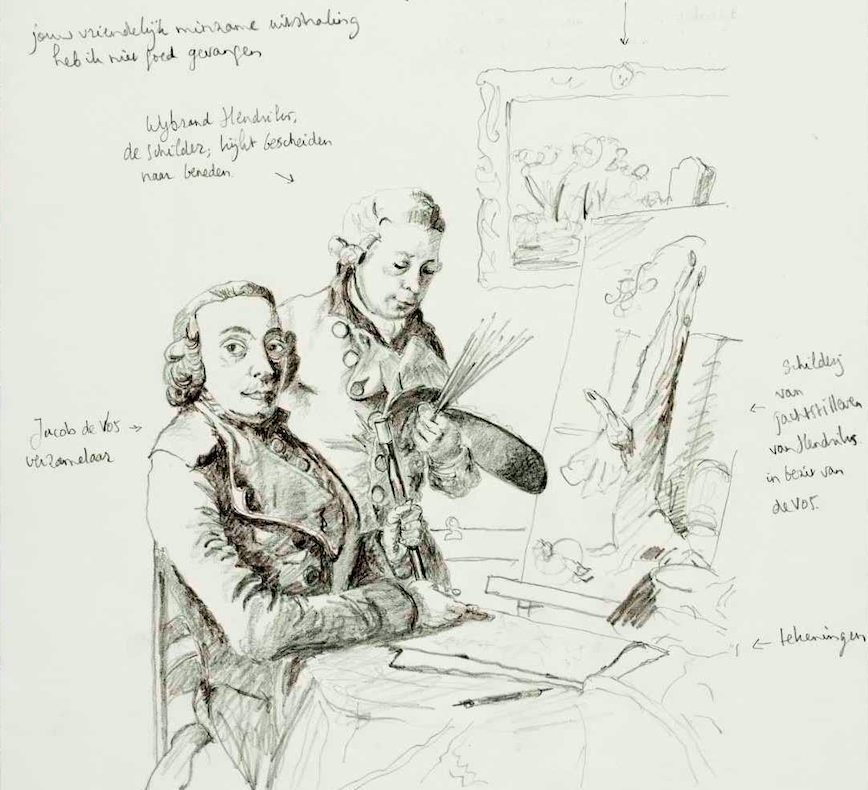 jouw vriendelijk minzame uitstraling
heb ik niet goed gevangen
Wybrand Hendriks,
de schilder, kijkt bescheiden
naar beneden.
Jacob de Vos →
verzamelaar
schilderij
van
← jachtstilleven
van Hendriks
in bezit van
de Vos.
← tekeningen